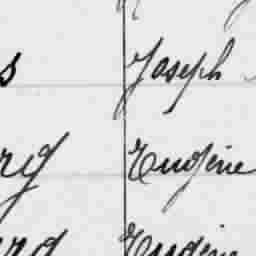 s Joseph
rg Eugène
rd Eugène